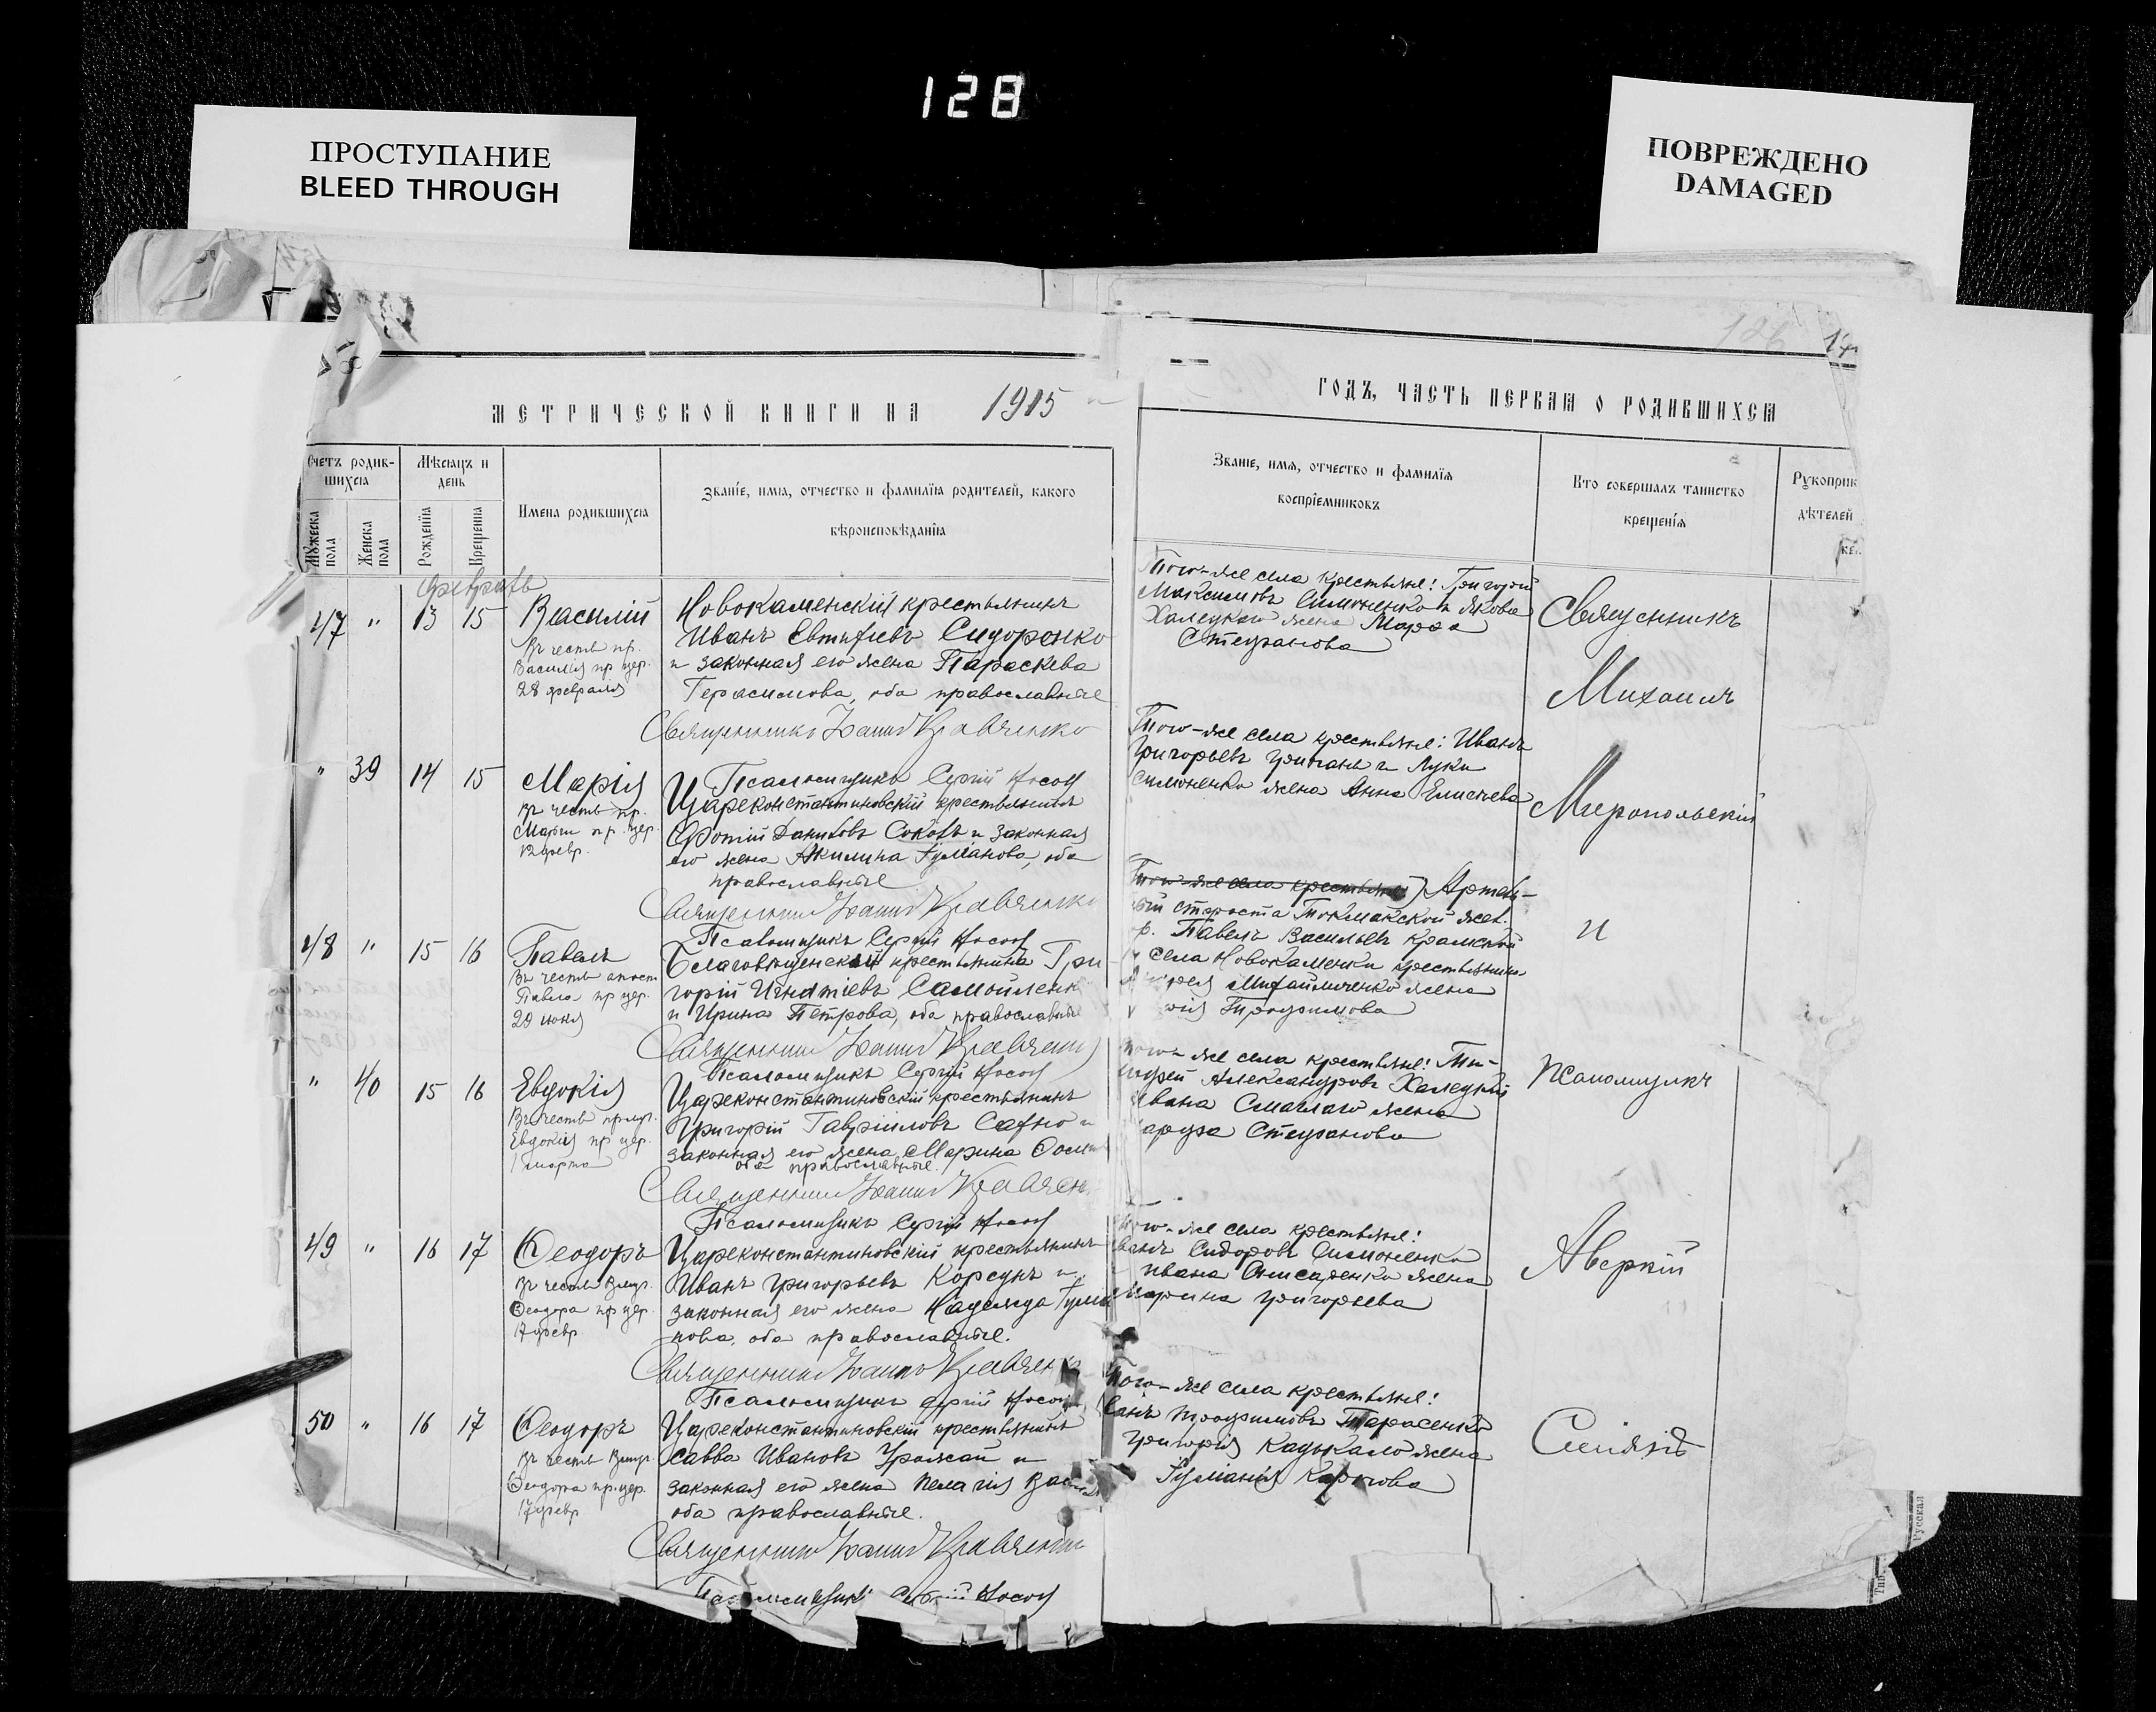 128
ПРОСТУПАНИЕ
BLEED THROUGH
ПОВРЕЖДЕНО
DAMAGED
126
МЕТРИЧЕСКОЙ КНИГИ НА 1915
Счетъ родив-
шихся
Мѣсяцъ и
день
Мужеска
пола
Женска
пола
Рожденія
Крещенія
Имена родившихся
Званіе, имя, отчество и фамилія родителей, какого
вѣроисповѣданія
Февраль
47 " 13 15 Василій
Въ честь пр.
Василія пр. цер.
28 февраля
Новокаменскій крестьянинъ
Иванъ Евтифіевъ Сидоренко
и законная его жена Параскева
Герасимова, оба православные
Священникъ Іоаннъ Кравченко
Псаломщикъ Сергій Носов
" 39 14 15 Марія
Въ честь пр.
Маріи пр. цер.
12 февр.
Цареконстантиновскій крестьянинъ
Фотій Даниловъ Соколъ и законная
его жена Акилина Іуліанова, оба
православные
Священникъ Іоаннъ Кравченко
Псаломщикъ Сергій Носов
48 " 15 16 Павелъ
Въ честь апост.
Павла пр. цер.
29 іюня
Благовѣщенскій крестьянинъ Гри-
горій Игнатіевъ Самойленк
и Ирина Петрова, оба православные
Священникъ Іоаннъ Кравченко
Псаломщикъ Сергій Носов
" 40 15 16 Евдокія
Въ честь прмц.
Евдокіи пр. цер.
1 марта
Цареконстантиновскій крестьянинъ
Григорій Гавріиловъ Сафно и
законная его жена Марина
оба православные.
Священникъ Іоаннъ Кравчен
Псаломщикъ Сергій Носов
49 " 16 17 Ѳеодоръ
Въ честь Влмч.
Ѳеодора пр. цер.
17 февр.
Цареконстантиновскій крестьянинъ
Иванъ Григорьевъ Корсунъ и
законная его жена Надежда Іуліа
нова, оба православные.
Священникъ Іоаннъ Кравченк
Псаломщикъ Сергій Носов
50 " 16 17 Ѳеодоръ
Въ честь Влмч.
Ѳеодора пр. цер.
17 февр.
Цареконстантиновскій крестьянинъ
Савва Ивановъ Урожай и
законная его жена Пелагія
оба православные.
Священникъ Іоаннъ Кравченко
Псаломщикъ Сергій Носов
ГОДЪ, ЧАСТЬ ПЕРВАЯ О РОДИВШИХСЯ
Званіе, имя, отчество и фамилія
воспріемниковъ
Кто совершалъ таинство
крещенія
Рукоприк
дѣтелей
Того-же села крестьяне: Григорій
Максимовъ Симоненко и Якова
Халецкаго жена Марѳа
Стефанова
Того-же села крестьяне: Иванъ
Григорьевъ Григанъ и Луки
Симоненко жена Анна Елисѣева
Того-же села крестьяне Артель-
ный староста Токмакской жел.
Павелъ Васильевъ Крамской
села Новокаменки крестьянина
Михайличенко жена
Трофимова
Того-же села крестьяне: Ти-
мофей Александровъ Халецкій
Ивана Смаглаго жена
Стефанова
Того-же села крестьяне:
Сидоровъ Симоненко
Ивана жена
Марина Григорьева
Того-же села крестьяне:
Трофимовъ Тарасенко
Григорія Кадькало жена
Іуліанія Карпова
Священникъ
Михаилъ
Миропольскій
и
Псаломщикъ
Аверкій
Русская
Тип.